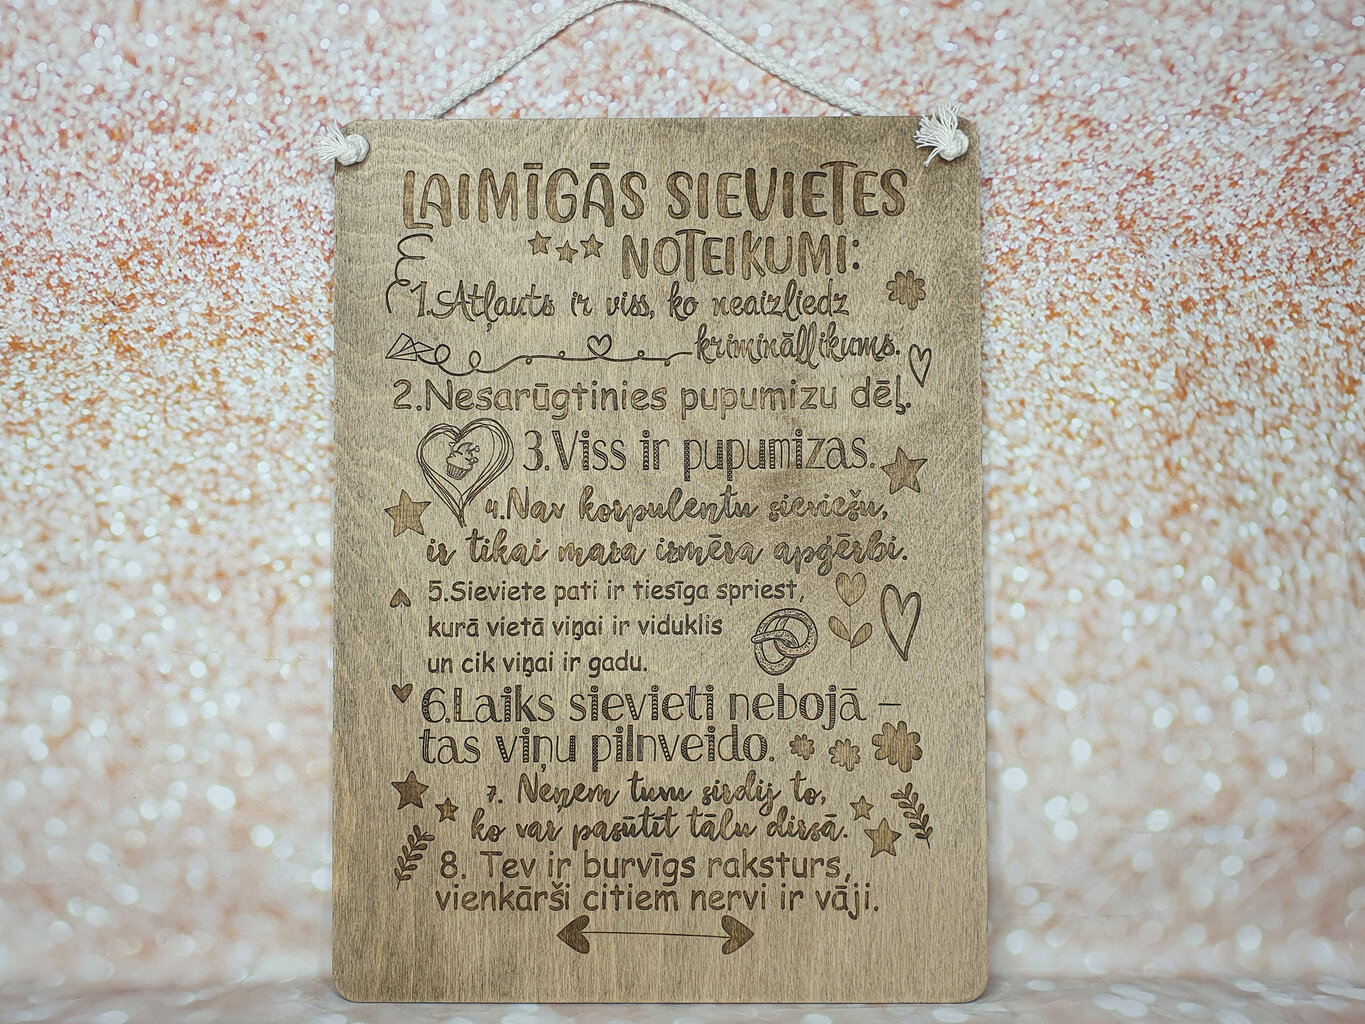 LAIMĪGĀS SIEVIETES
NOTEIKUMI:
1.Atļauts ir viss, ko neaizliedz
krimināllikums.
2.Nesarūgtinies pupumizu dēļ.
3.Viss ir pupumizas.
4.Nav korpulentu sieviešu,
ir tikai maza izmēra apģērbi.
5.Sieviete pati ir tiesīga spriest,
kurā vietā viņai ir viduklis
un cik viņai ir gadu.
6.Laiks sievieti nebojā –
tas viņu pilnveido.
7. Neņem tuvu sirdij to,
ko var pasūtīt tālu dirsā.
8. Tev ir burvīgs raksturs,
vienkārši citiem nervi ir vāji.